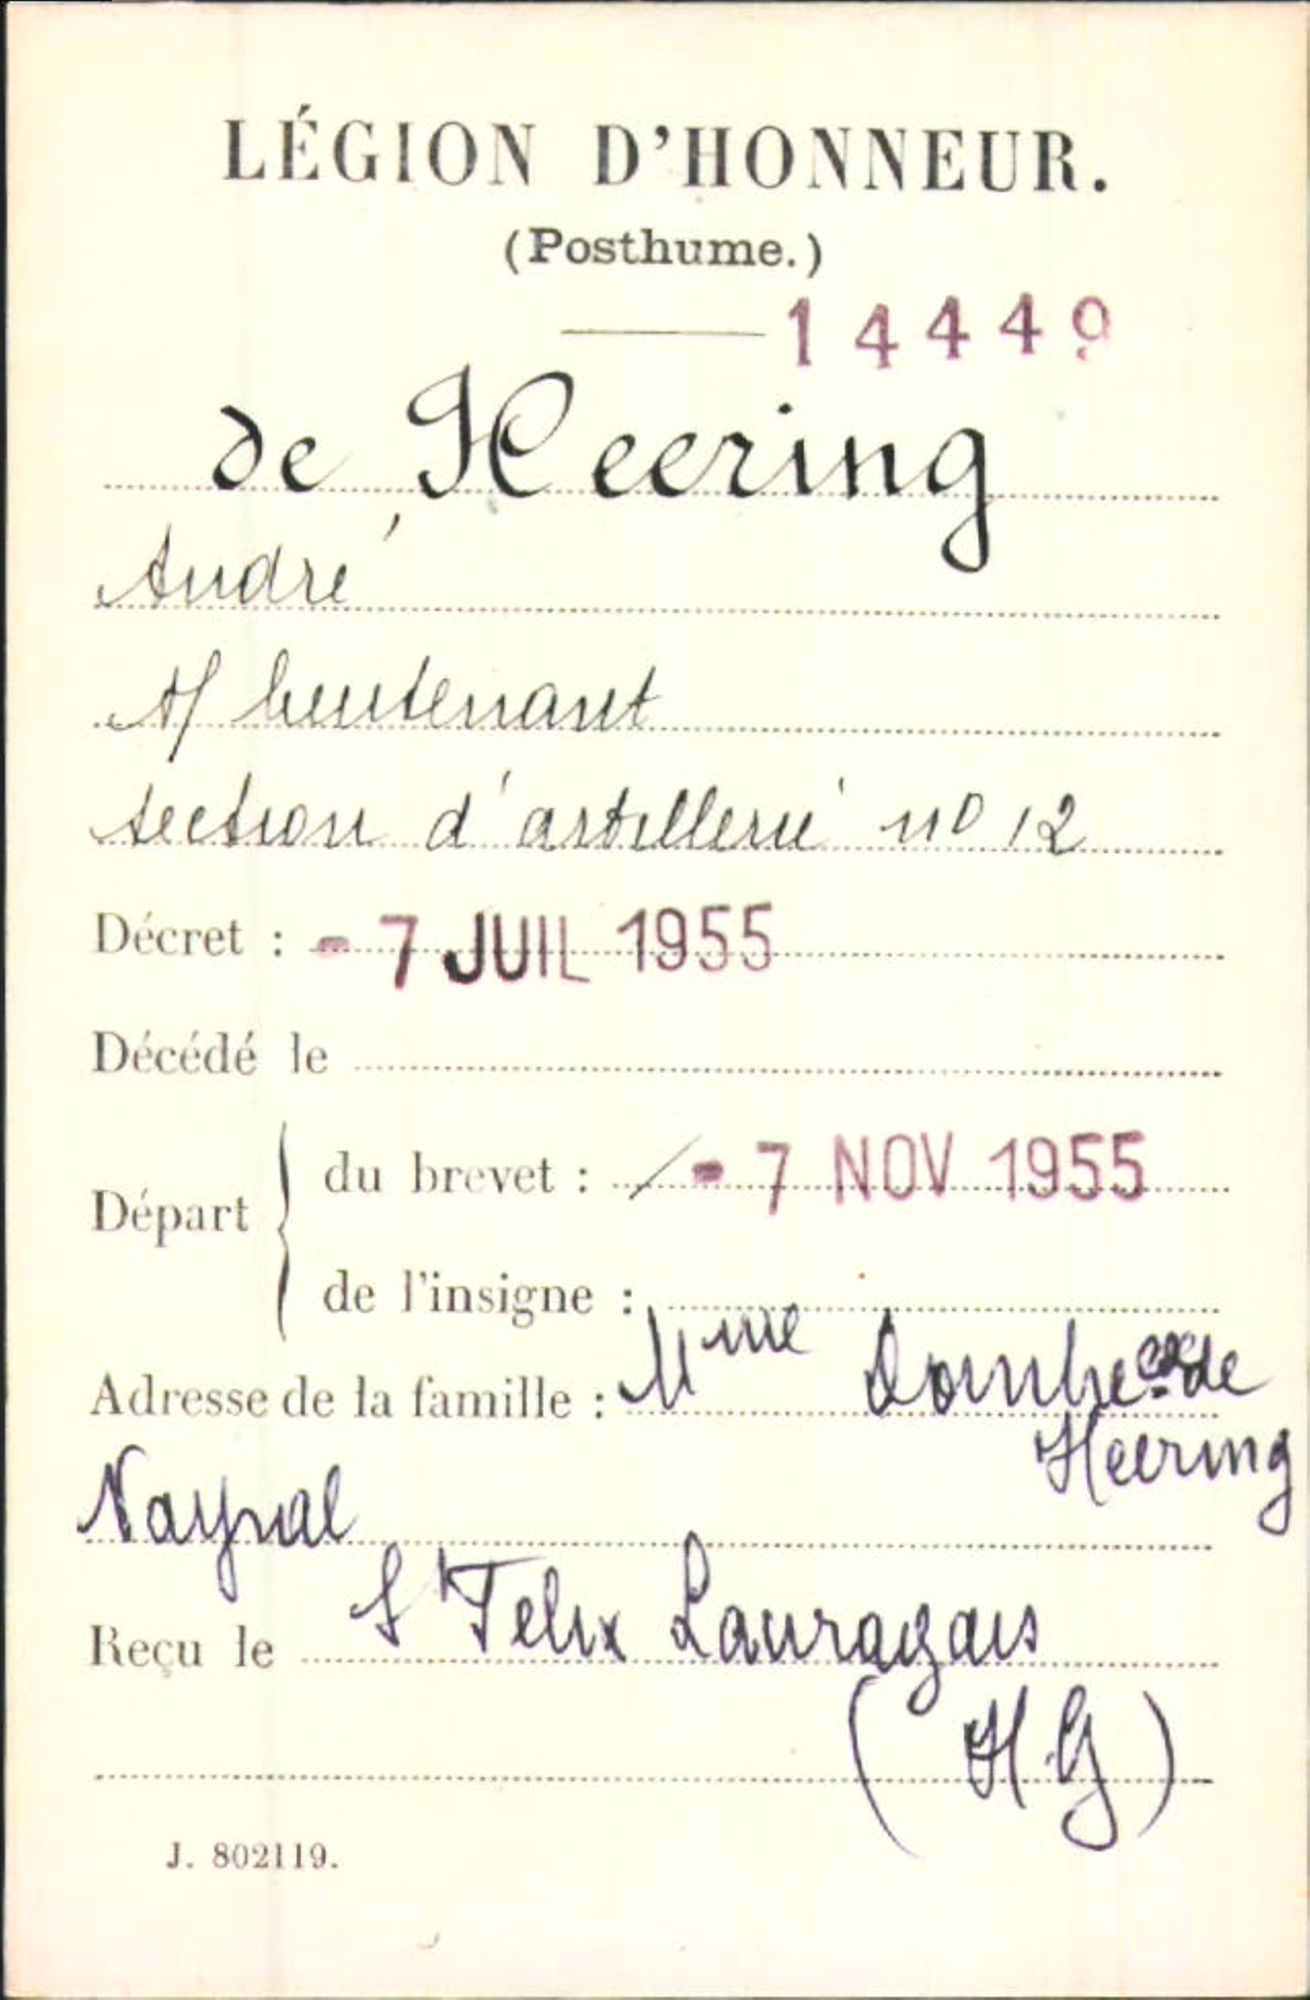 LÉGION D'HONNEUR.
(Posthume.)
14449
de Heering
André
s/ lieutenant
section d'artillerie n° 12
Décret : - 7 JUIL 1955
Décédé le
Départ
du brevet : - 7 NOV 1955
de l'insigne :
Adresse de la famille : Mme de
Heering
Nayral
Reçu le St Felix Lauragais
(H.G)
J. 802119.